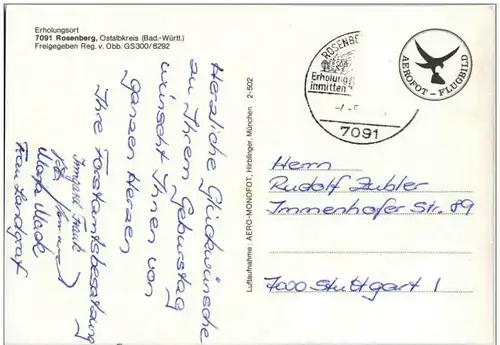 Erholungsort
7091 Rosenberg, Ostalbkreis (Bad.-Württ.)
Freigegeben Reg. v. Obb. GS300/8292
Herzliche Glückwünsche
zu Ihrem Geburtstag
wünscht Ihnen von
ganzen Herzen
Ihre Forstamtsbesatzung
Irmgard
Frau Landgraf
Luftaufnahme: AERO-MONOFOT, Hirblinger, München 2-502
ROSENBE
Erholung
inmitten
7091
AEROFOT-FLUGBILD
Herrn
Rudolf Zubler
Immenhofer Str. 89
7000 Stuttgart 1